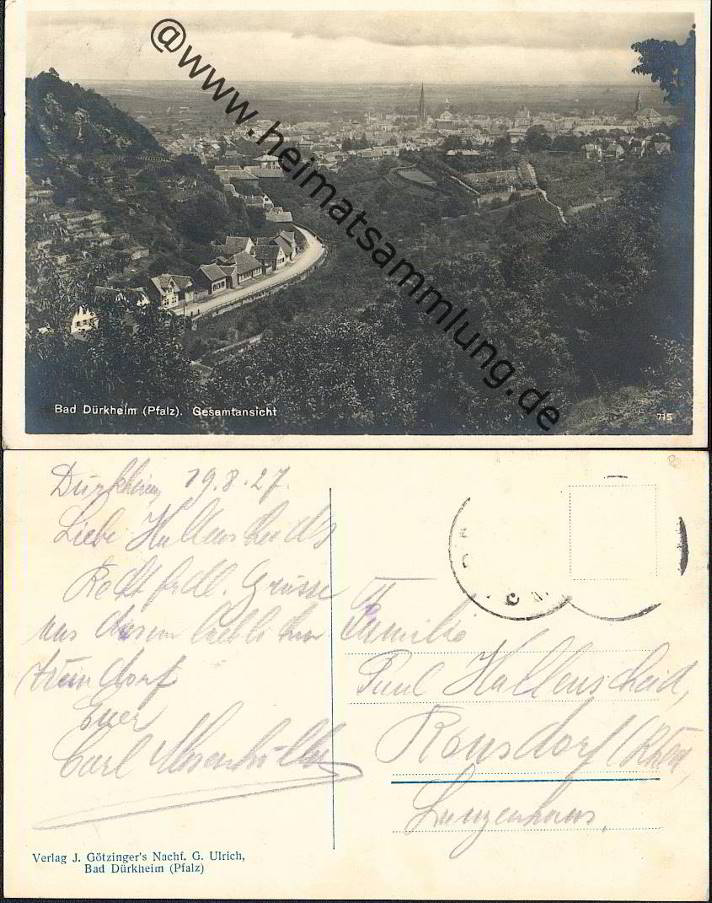 @www.heimatsammlung.de
Bad Dürkheim (Pfalz). Gesamtansicht
715
Dürkheim, 19.8.27.
Liebe Hallenscheids
Recht frdl. Grüsse
aus diesem
Euer
Carl
Familie
Paul Hallenscheid,
Ronsdorf (Rhld),
Verlag J. Götzinger's Nachf. G. Ulrich,
Bad Dürkheim (Pfalz)